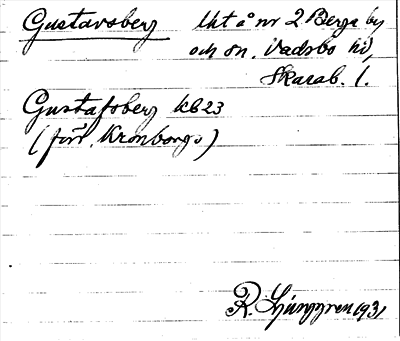 Gustavsberg lht å nr 2 Berga by
och sn. Vadsbo hd,
Skarab. l.
Gustafsberg kb 23
(förr. Kronborgs)
R. Ljunggren 1931